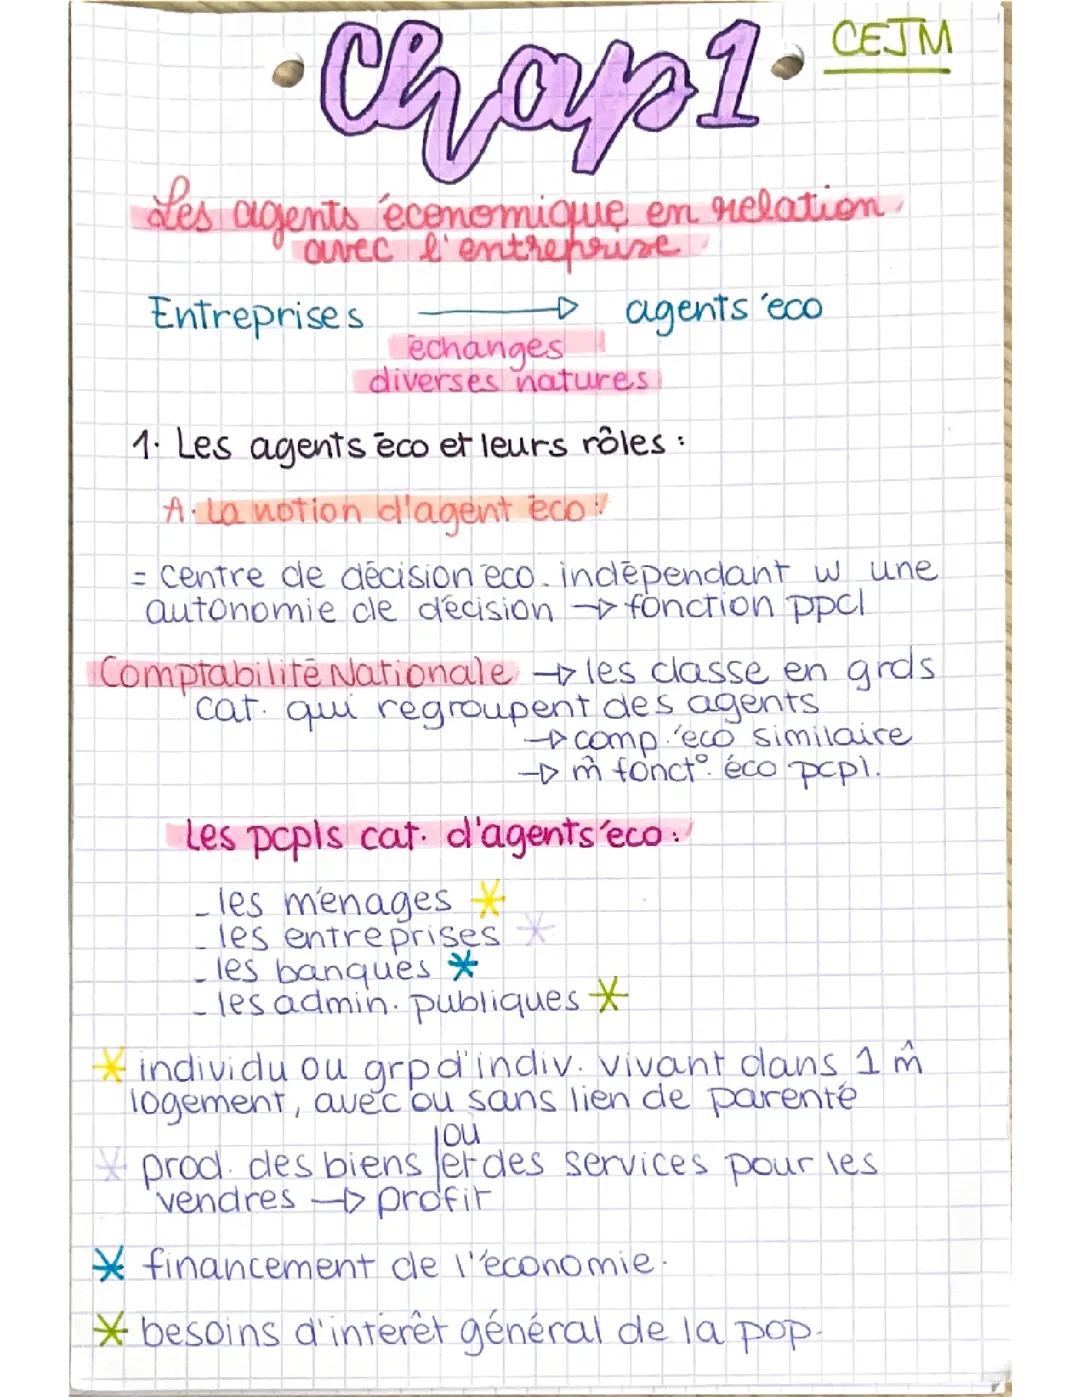 Chap1
CEJM
Les agents économique en relation
avec l'entreprise
Entreprises → agents éco
échanges
diverses natures
1. Les agents éco et leurs rôles :
A. La notion d'agent éco :
= centre de décision éco. indépendant w une
autonomie de décision → fonction ppcl
Comptabilité Nationale → les classe en grds
cat. qui regroupent des agents
→ comp. éco similaire
→ m̂ fonct°. éco pcpl.
Les pcpls cat. d'agents éco :
- les ménages *
- les entreprises *
- les banques *
- les admin. publiques *
* individu ou grp d'indiv. vivant dans 1 m̂
logement, avec ou sans lien de parenté
ou
* prod. des biens et des services pour les
vendres → profit
* financement de l'économie.
* besoins d'intérêt général de la pop.